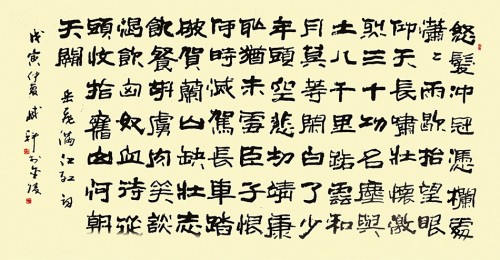 怒髮冲冠憑欄處
瀟〻雨歇抬望眼
仰天長嘯壯懷激
烈三十功名塵與
土八千里路雲和
月莫等閒白了少
年頭空悲切靖康
恥猶未雪臣子恨
何時滅駕長車踏
破賀蘭山缺壯志
飢餐胡虜肉笑談
渴飲匈奴血待從
頭收拾舊山河朝
天闕
岳飛滿江紅詞
戊寅仲夏於金陵